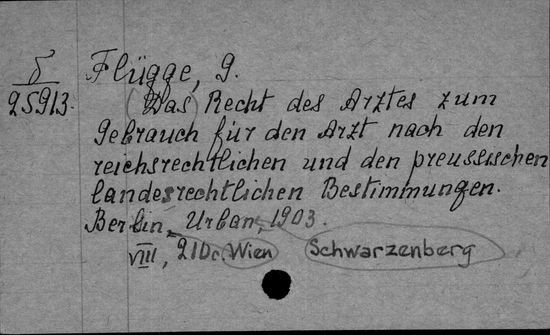 δ
25913.
Flügge, G.
(Das) Recht des Arztes zum
Gebrauch für den Arzt nach den
reichsrechtlichen und den preussischen
landesrechtlichen Bestimmungen.
Berlin, Urban, 1903.
VIII, 210 Wien Schwarzenberg